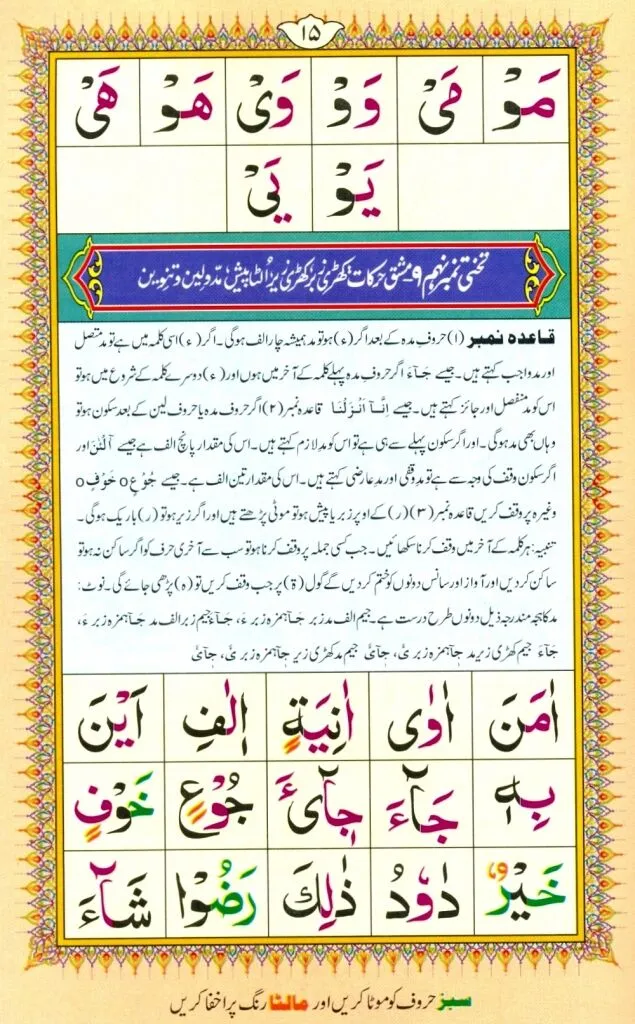 ۱۵
مَوْ مَیْ وَوْ وَیْ هَوْ هَیْ
یَوْ یَیْ
تختی نمبر نہم ۹ مشق حرکات کھڑی زبر کھڑی زیر اُلٹا پیش مدّ و لین و تنوین
قاعدہ نمبر (۱) حروف مدہ کے بعد اگر (ء) ہو تو مد ہمیشہ چار الف ہوگی۔ اگر (ء) اسی کلمہ میں ہے تو مد متصل
اور مدواجب کہتے ہیں۔ جیسے جَآءَ اگر حروف مدہ پہلے کلمہ کے آخر میں ہوں اور (ء) دوسرے کلمہ کے شروع میں ہو تو
اس کو مد منفصل اور جائز کہتے ہیں۔ جیسے اِنَّآ اَنْزَلْنَا قاعدہ نمبر (۲) اگر حروف مدہ یا حروف لین کے بعد سکون ہو تو
وہاں بھی مد ہوگی۔ اور اگر سکون پہلے سے ہی ہے تو اس کو مد لازم کہتے ہیں۔ اس کی مقدار پانچ الف ہے جیسے آلْئٰنَ اور
اگر سکون وقف کی وجہ سے ہے تو مد وقفی اور مد عارضی کہتے ہیں۔ اس کی مقدار تین الف ہے۔ جیسے جُوْعٍ ٥ خَوْفٍ ٥
وغیرہ پر وقف کریں قاعدہ نمبر (۳) (ر) کے اوپر زبر یا پیش ہو تو موٹی پڑھتے ہیں اور اگر زیر ہو تو (ر) باریک ہوگی۔
تنبیہ: ہر کلمہ کے آخر میں وقف کرنا سکھائیں۔ جب کسی جملہ پر وقف کرنا ہو تو سب سے آخری حرف کو اگر ساکن نہ ہو تو
ساکن کر دیں اور آواز اور سانس دونوں کو ختم کر دیں گے گول (ة) پر جب وقف کریں تو (ہ) پڑھی جائے گی۔ نوٹ:
مد کا ہجہ مندرجہ ذیل دونوں طرح درست ہے۔ جیم الف مد زبر جَآ ہمزہ زبر ءَ، جَآءَ جیم زبر الف مد جَآ ہمزہ زبر ءَ،
جَآءَ جیم کھڑی زیر مد جآ ہمزہ زبر ئَ، جآئَ جیم مد کھڑی زیر جآ ہمزہ زبر ئَ، جآئَ
اٰمَنَ اٰوٰی اٰنِیَةٍ اِلٰفِ اَیْنَ
بِهٖ جَآءَ جِایْٓءَ جُوْعٍ خَوْفٍ
خَیْرٌ دٰوٗدُ ذٰلِكَ رَضُوْا شَآءَ
سبز حروف کو موٹا کریں اور مالٹا رنگ پر اخفا کریں